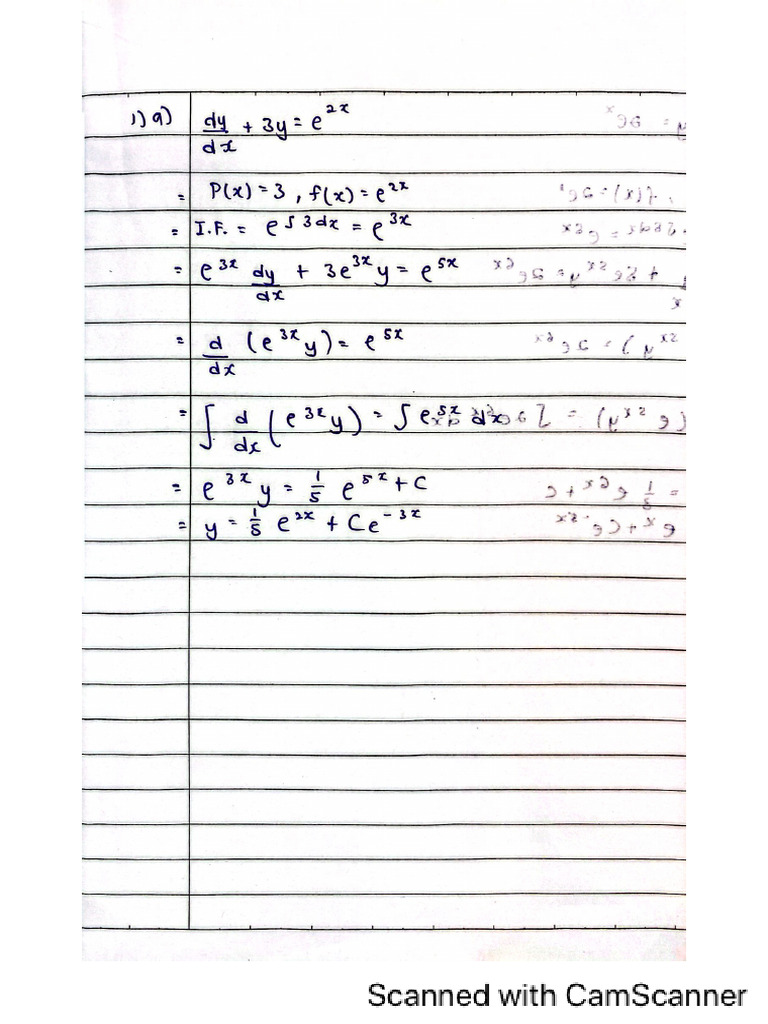 1) a) dy/dx + 3y = e^{2x}
= P(x) = 3 , f(x) = e^{2x}
= I.F. = e^{∫3dx} = e^{3x}
= e^{3x} dy/dx + 3e^{3x} y = e^{5x}
= d/dx (e^{3x} y) = e^{5x}
= ∫ d/dx (e^{3x} y) = ∫ e^{5x} dx
= e^{3x} y = 1/5 e^{5x} + C
= y = 1/5 e^{2x} + Ce^{-3x}
Scanned with CamScanner